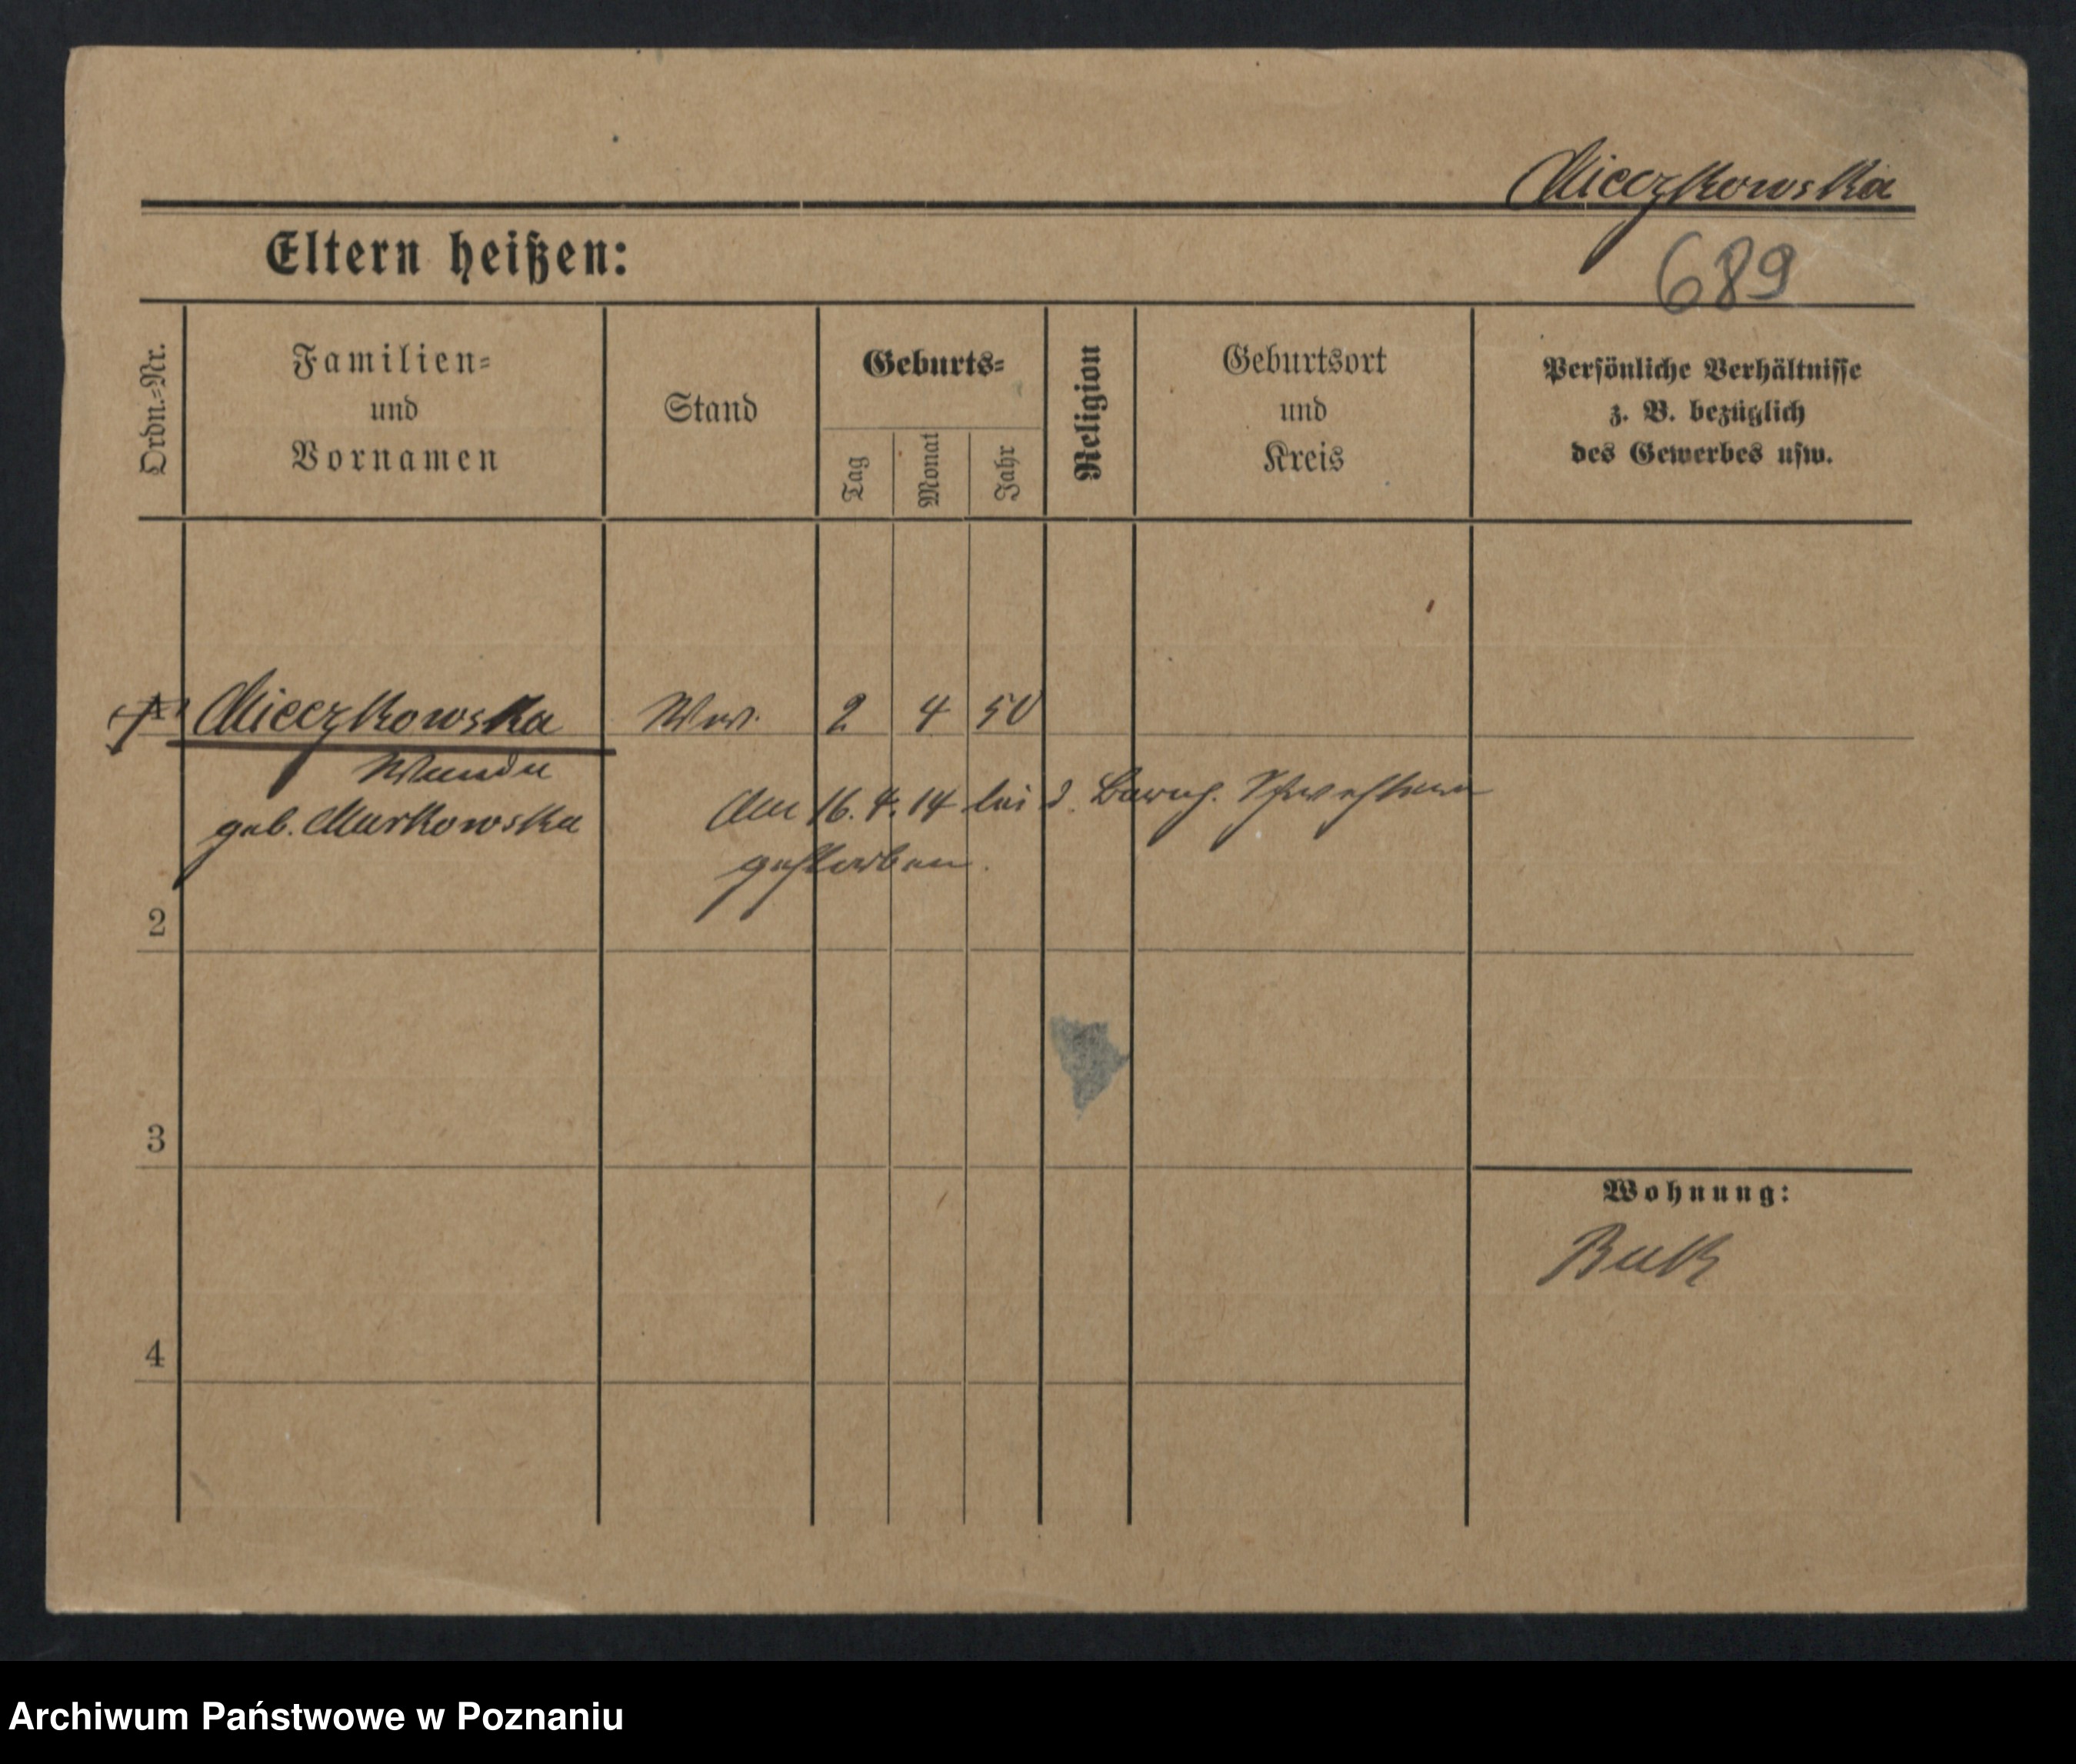 Mieczkowska
689
Eltern heißen:
Ordn.-Nr.
Familien-
und
Vornamen
Stand
Geburts-
Tag
Monat
Jahr
Religion
Geburtsort
und
Kreis
Persönliche Verhältnisse
z. B. bezüglich
des Gewerbes usw.
1 Mieczkowska Ww. 2 4 50
Wanda
geb. Markowska
Am 16. 4. 14 bei d. Barmh. Schwestern
gestorben.
2
3
Wohnung:
Buk
4
Archiwum Państwowe w Poznaniu